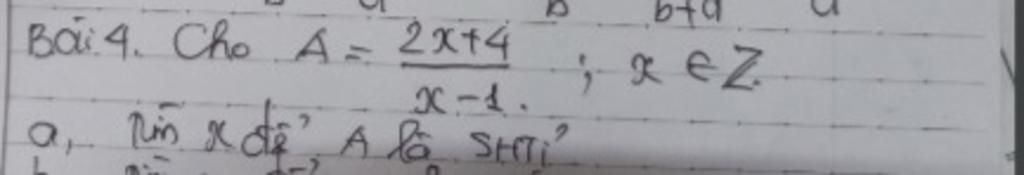 b b+a a
Bài 4. Cho A = 2x+4 / x-1 ; x ∈ Z.
a, Tìm x để A là SHTỉ